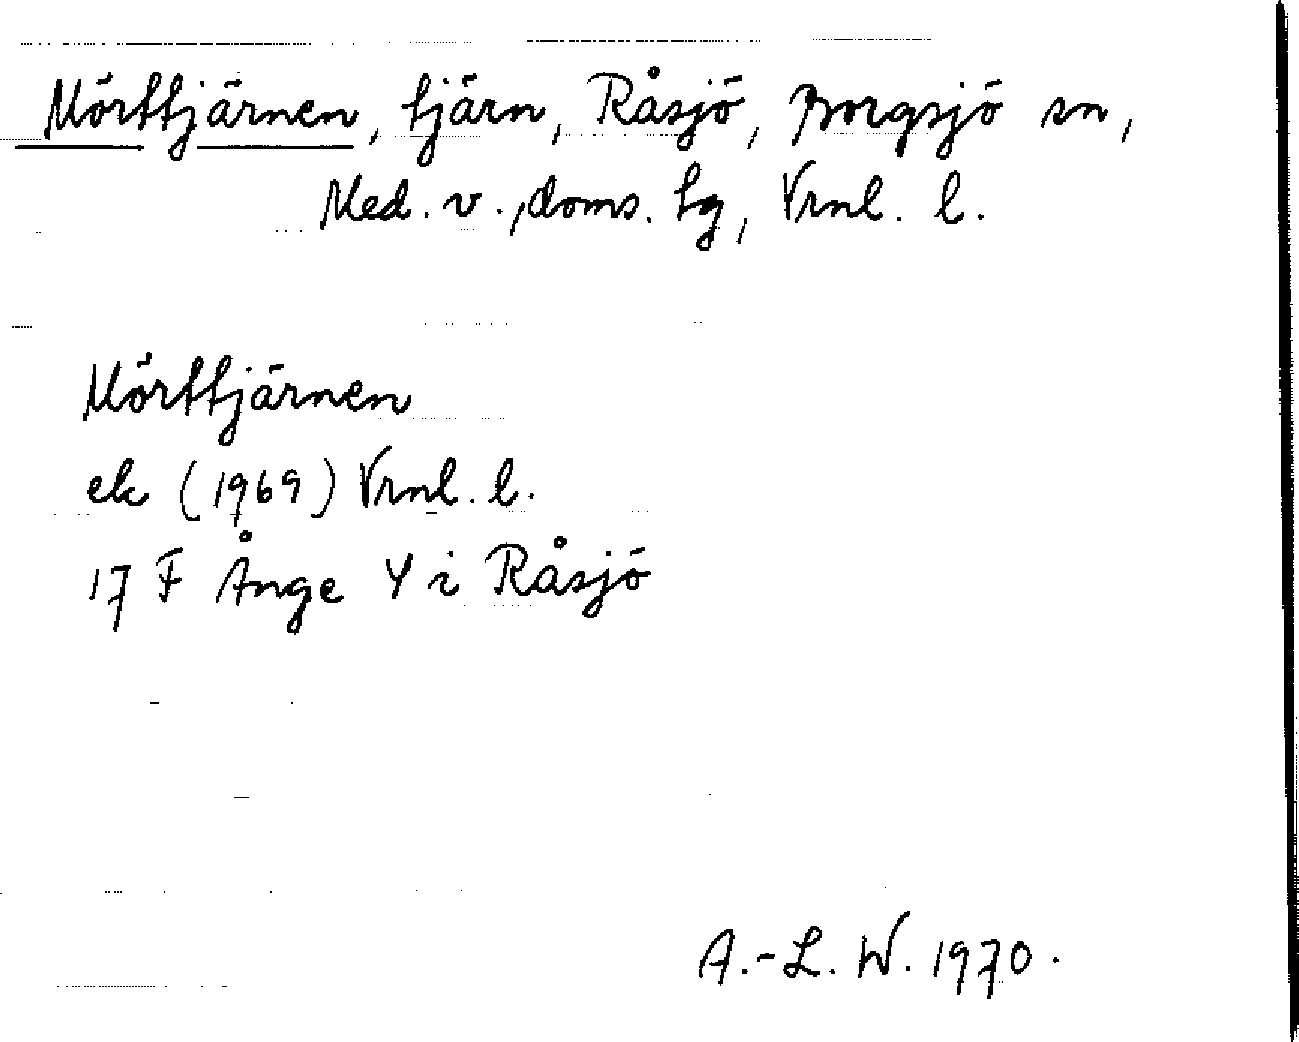 Mörttjärnen, tjärn, Råsjö, Borgsjö sn,
Med. v., doms. lg, Vrnl. l.
Mörttjärnen
ek (1969) Vrnl. l.
17 F Ånge Y i Råsjö
A.-L. W. 1970.